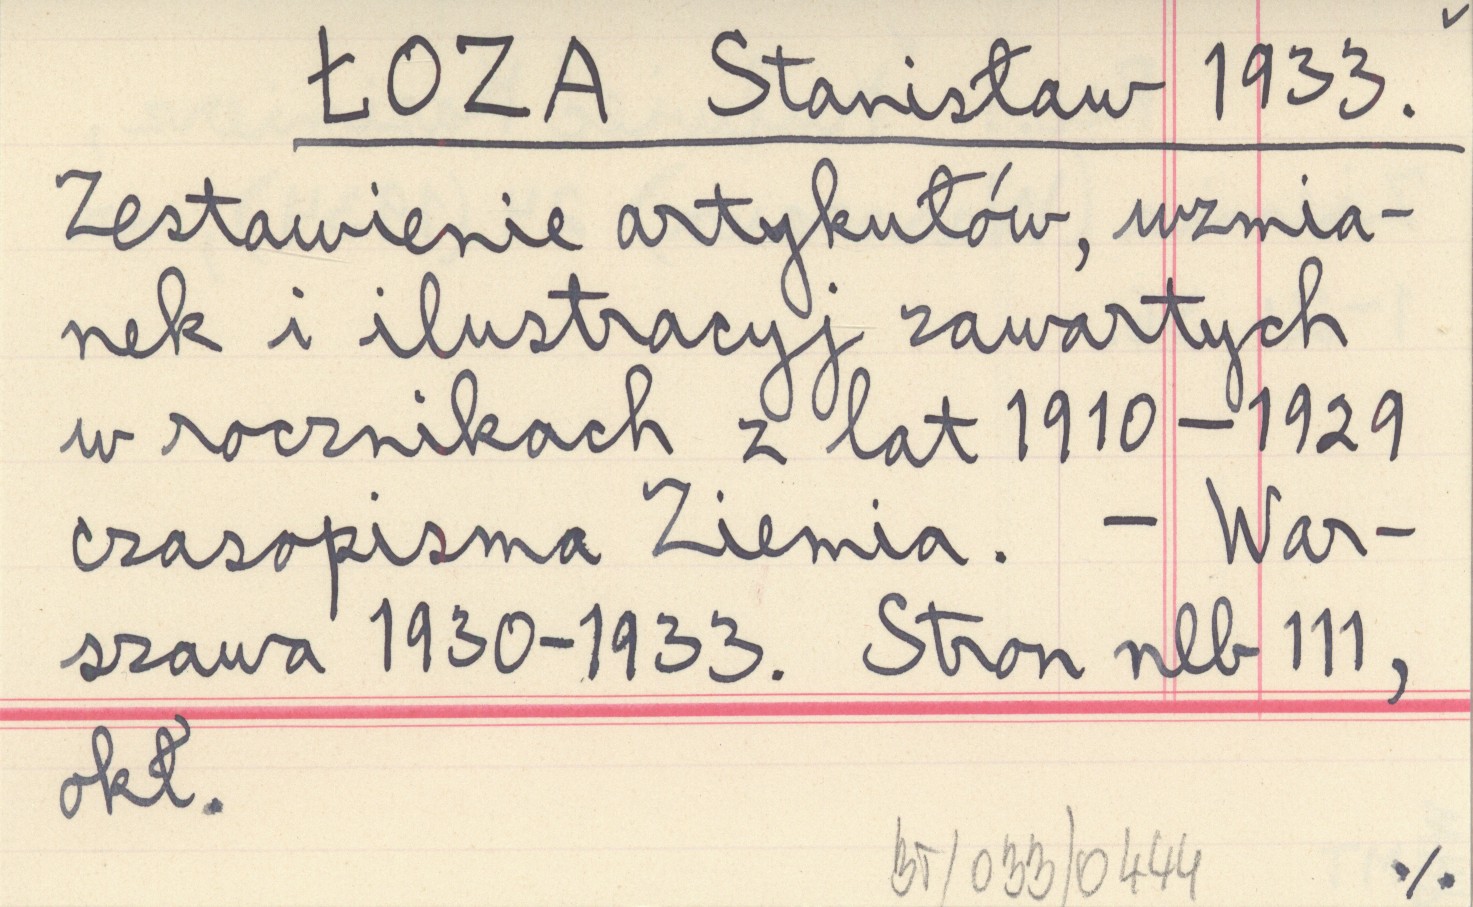 ŁOZA Stanisław 1933.
Zestawienie artykułów, wzmia-
nek i ilustracyj zawartych
w rocznikach z lat 1910-1929
czasopisma Ziemia. - War-
szawa 1930-1933. Stron nlb 111,
okł.
BT/033/0444
./.